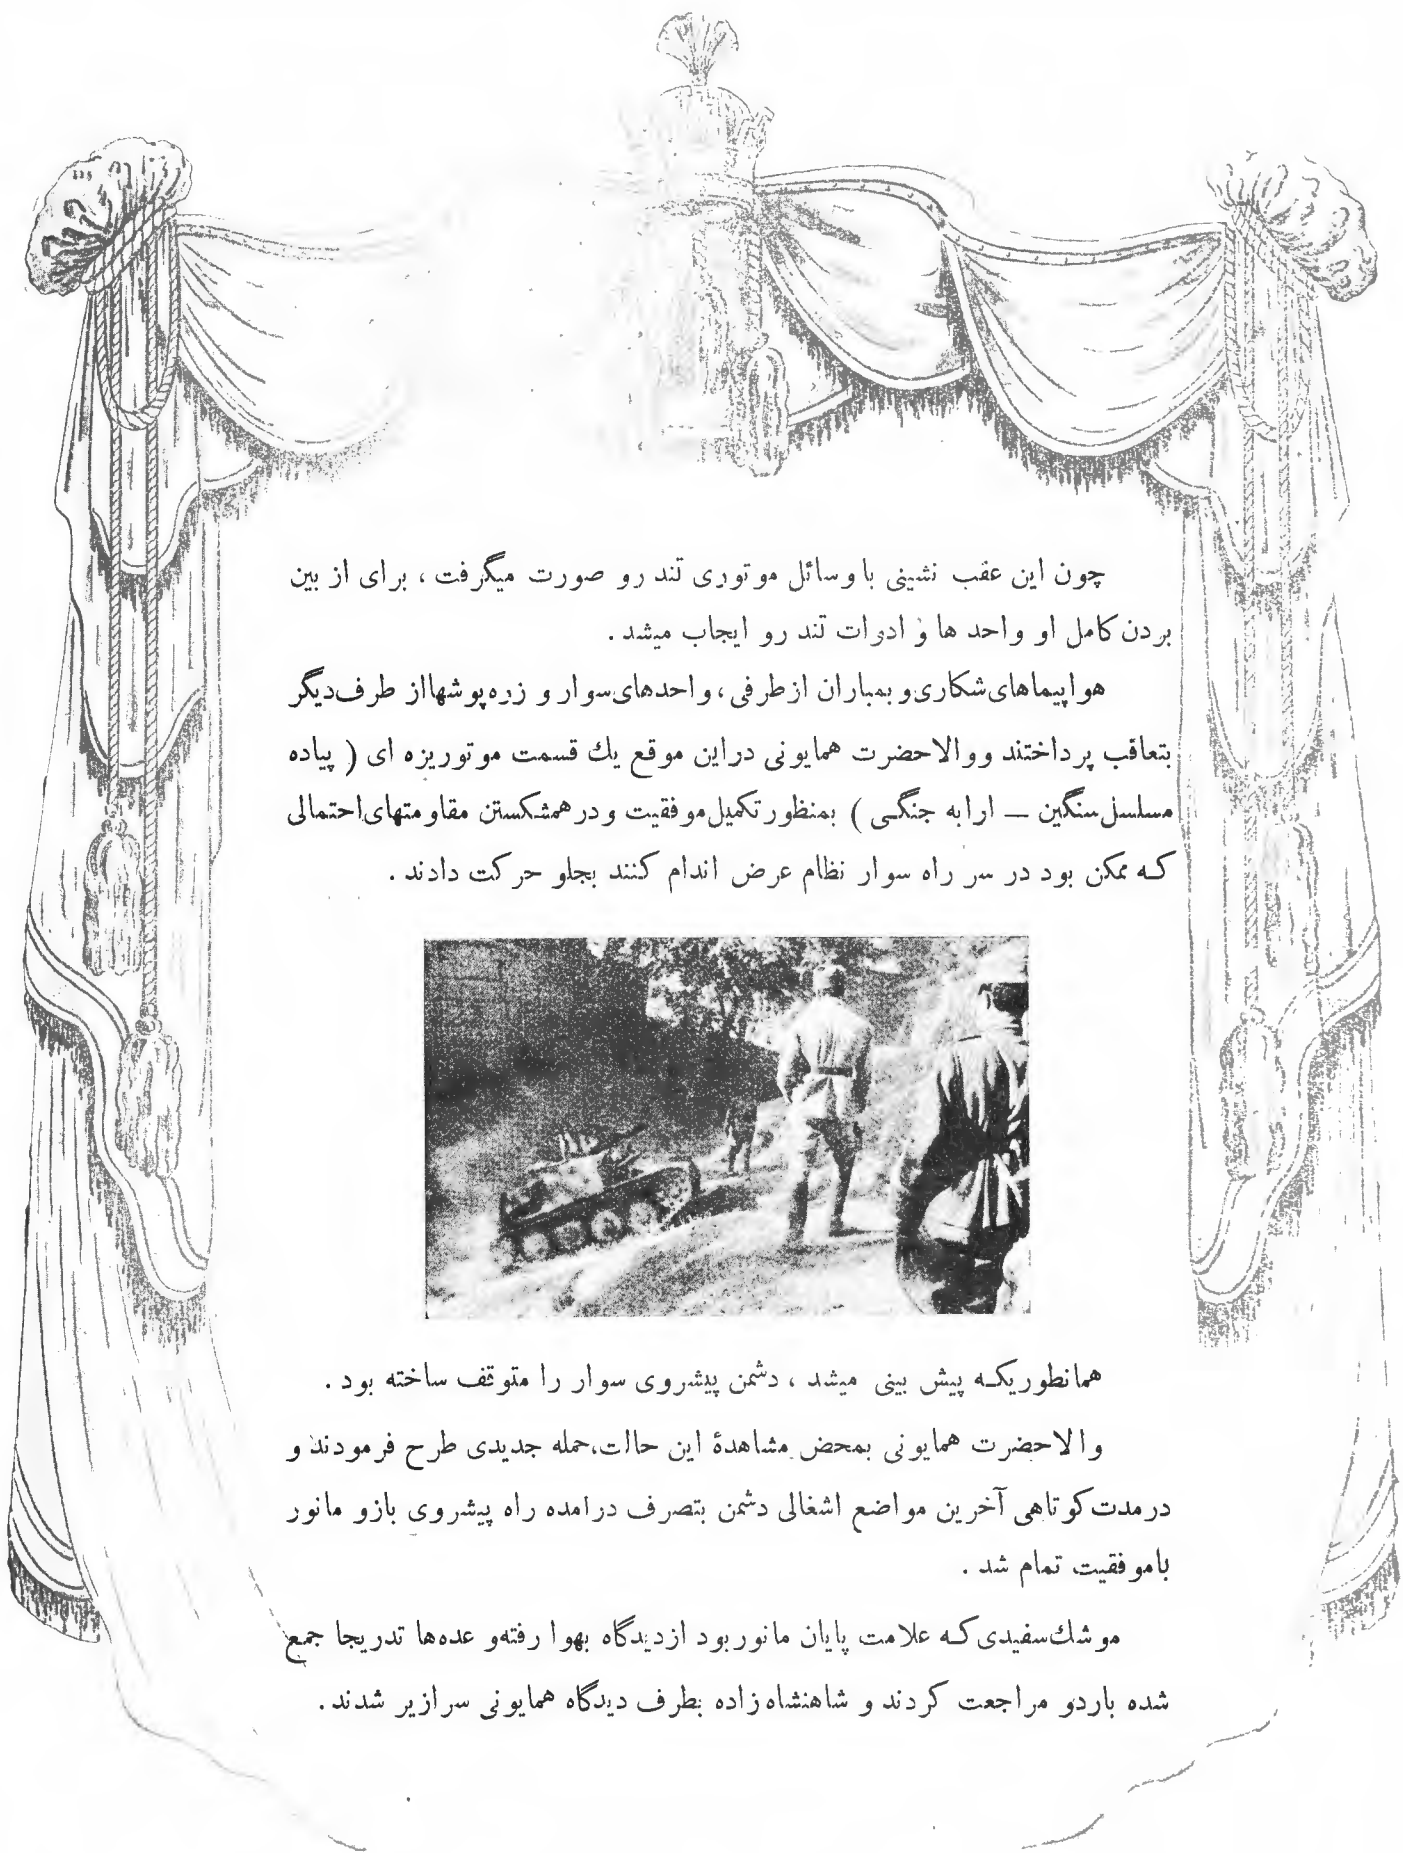 چون این عقب نشینی با وسائل موتوری تند رو صورت میگرفت ، برای از بین
بردن کامل او واحد ها و ادوات تند رو ایجاب میشد .
هواپیماهای شکاری و بمباران از طرفی ، واحدهای سوار و زره پوشها از طرف دیگر
بتعاقب پرداختند و والاحضرت همایونی در این موقع یك قسمت موتوریزه ای ( پیاده
مسلسل سنگین — ارابه جنگی ) بمنظور تکمیل موفقیت و درهمشکستن مقاومتهای احتمالی
که ممکن بود در سر راه سوار نظام عرض اندام کنند بجلو حرکت دادند .
همانطوریکه پیش بینی میشد ، دشمن پیشروی سوار را متوقف ساخته بود .
والاحضرت همایونی بمحض مشاهدۀ این حالت، حمله جدیدی طرح فرمودند و
در مدت کوتاهی آخرین مواضع اشغالی دشمن بتصرف درامده راه پیشروی بازو مانور
باموفقیت تمام شد .
موشك سفیدی که علامت پایان مانور بود از دیدگاه بهوا رفته و عده‌ها تدریجا جمع
شده باردو مراجعت کردند و شاهنشاه زاده بطرف دیدگاه همایونی سرازیر شدند .